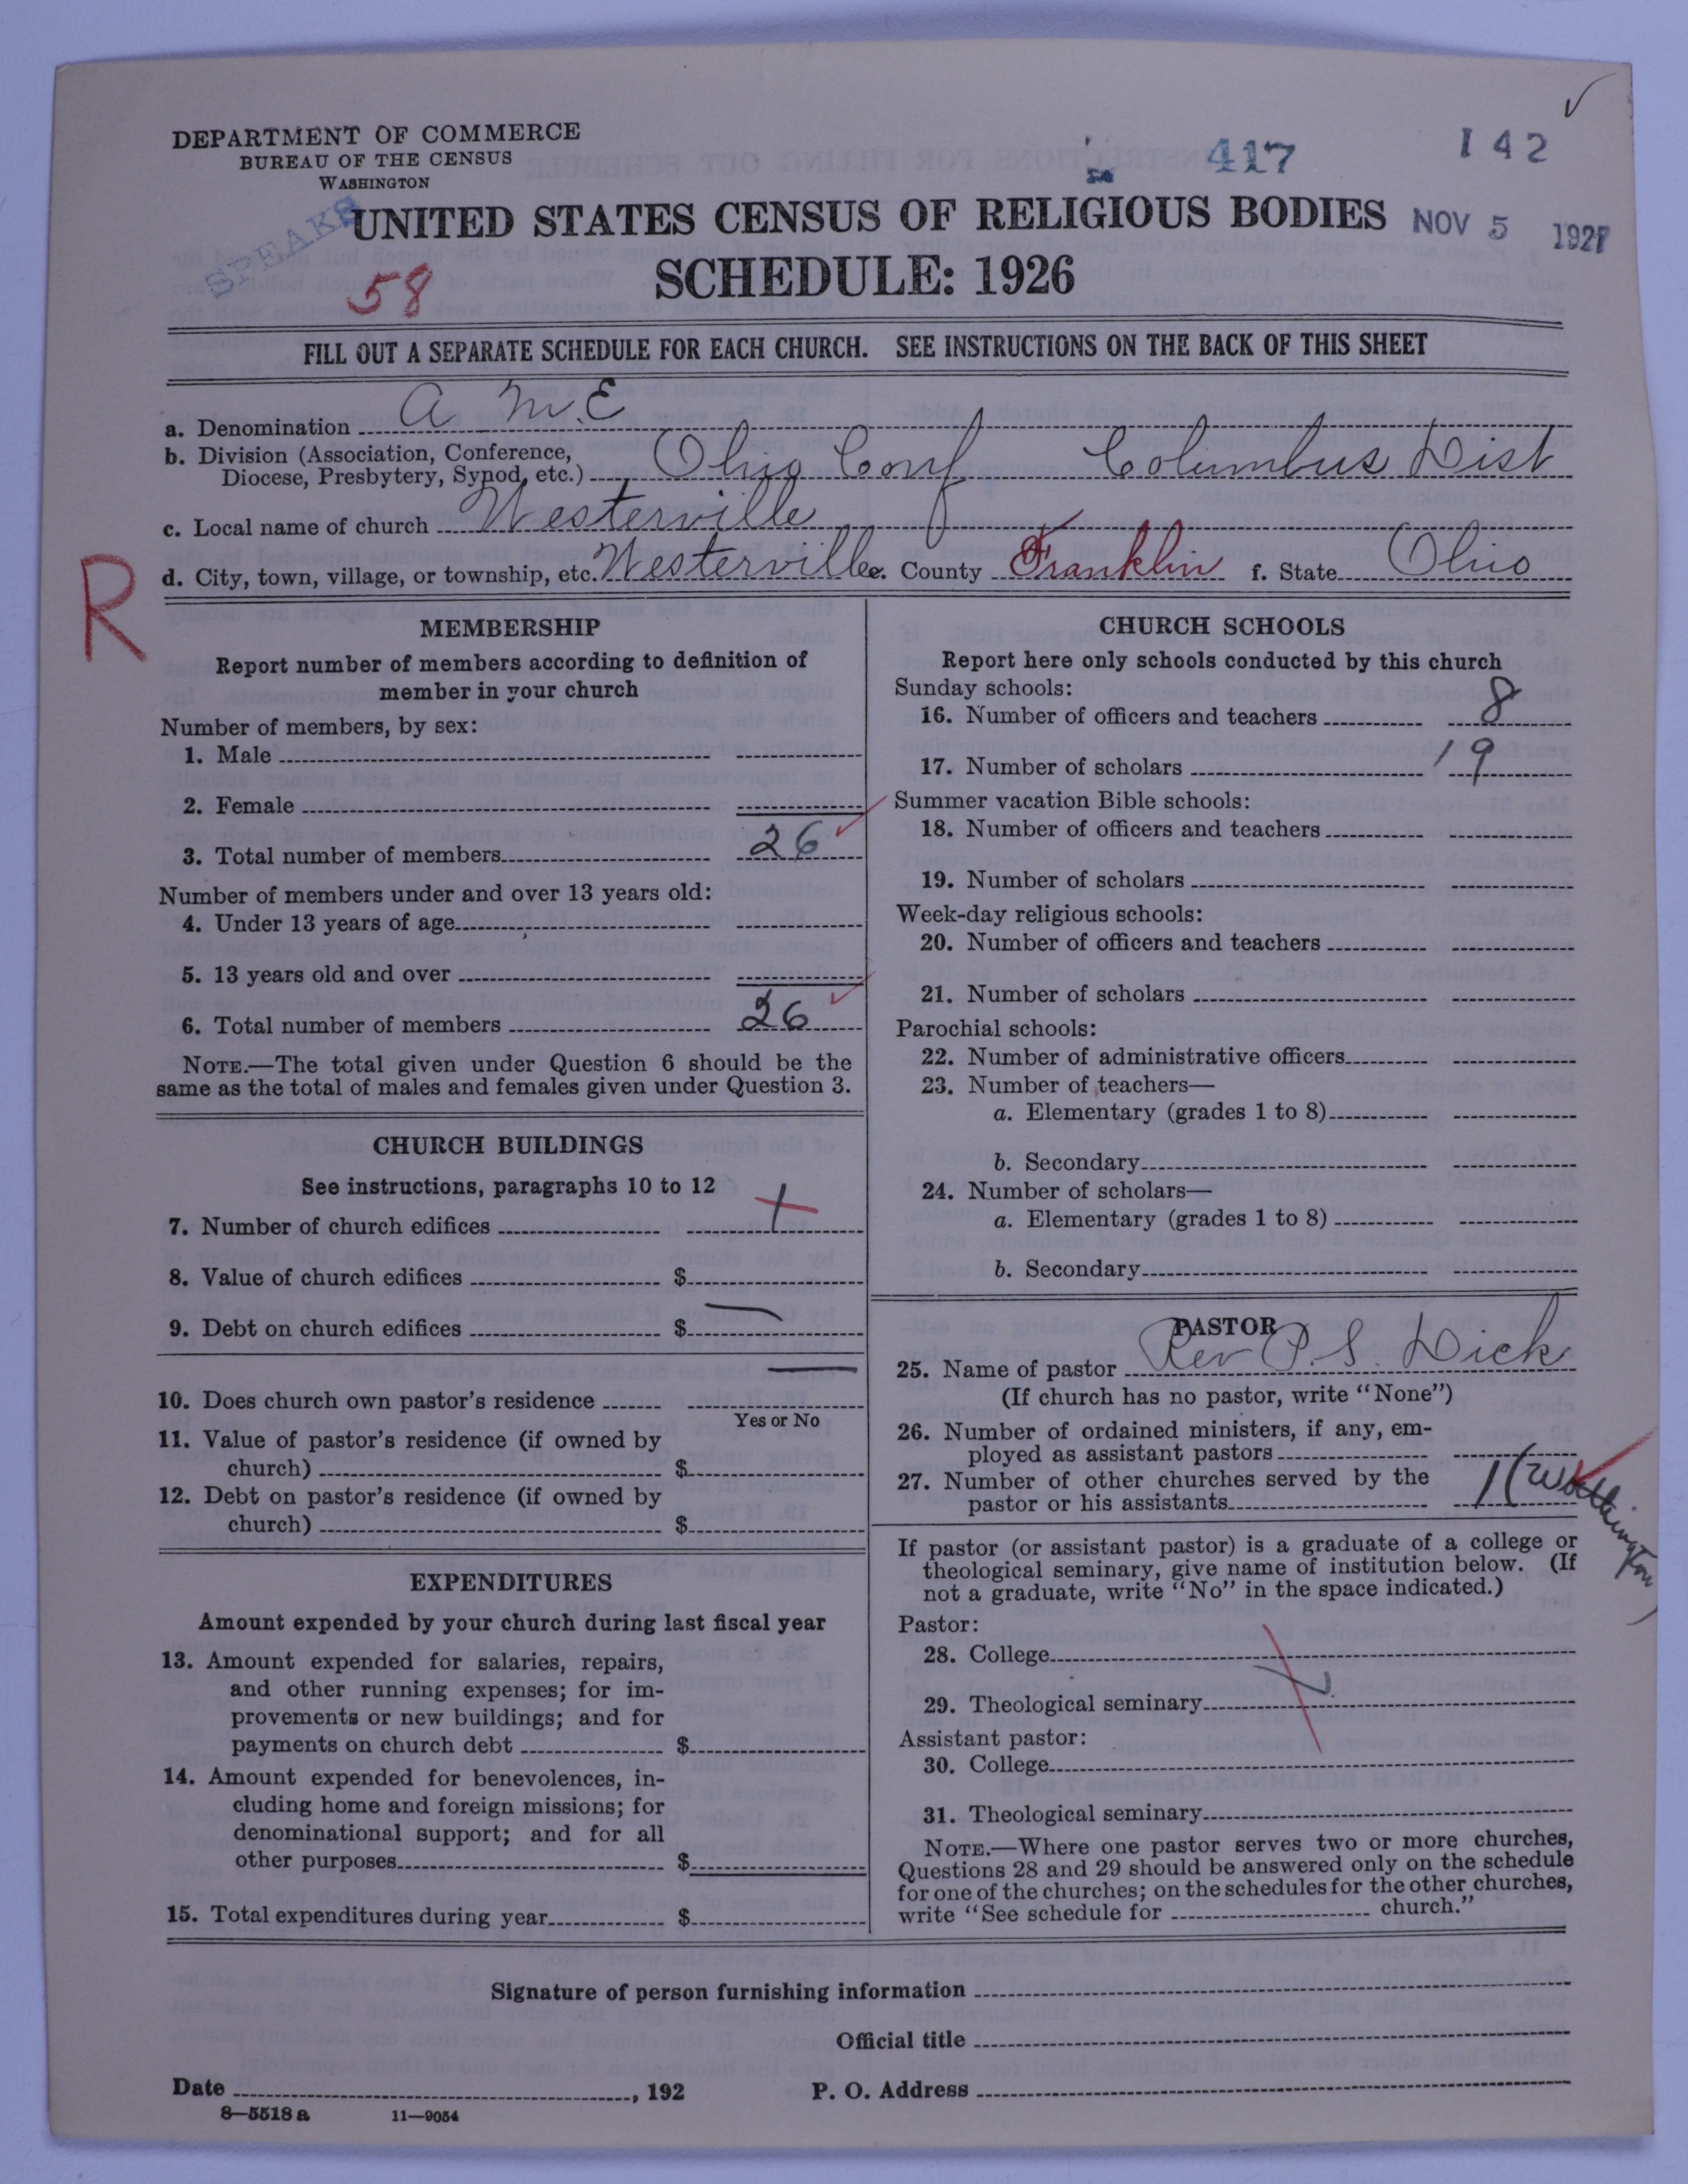 DEPARTMENT OF COMMERCE
BUREAU OF THE CENSUS
WASHINGTON
417
142
SPEAKS
UNITED STATES CENSUS OF RELIGIOUS BODIES
NOV 5 1927
58
SCHEDULE: 1926
FILL OUT A SEPARATE SCHEDULE FOR EACH CHURCH. SEE INSTRUCTIONS ON THE BACK OF THIS SHEET
a. Denomination A M.E
b. Division (Association, Conference,
Diocese, Presbytery, Synod, etc.) Ohio Conf Columbus Dist
c. Local name of church Westerville
d. City, town, village, or township, etc. Westerville e. County Franklin f. State Ohio
R
MEMBERSHIP
Report number of members according to definition of
member in your church
Number of members, by sex:
1. Male
2. Female
3. Total number of members 26
Number of members under and over 13 years old:
4. Under 13 years of age
5. 13 years old and over
6. Total number of members 26
NOTE.—The total given under Question 6 should be the
same as the total of males and females given under Question 3.
CHURCH BUILDINGS
See instructions, paragraphs 10 to 12
7. Number of church edifices 1
8. Value of church edifices $
9. Debt on church edifices $ —
10. Does church own pastor's residence —
Yes or No
11. Value of pastor's residence (if owned by
church) $
12. Debt on pastor's residence (if owned by
church) $
EXPENDITURES
Amount expended by your church during last fiscal year
13. Amount expended for salaries, repairs,
and other running expenses; for im-
provements or new buildings; and for
payments on church debt $
14. Amount expended for benevolences, in-
cluding home and foreign missions; for
denominational support; and for all
other purposes $
15. Total expenditures during year $
CHURCH SCHOOLS
Report here only schools conducted by this church
Sunday schools:
16. Number of officers and teachers 8
17. Number of scholars 19
Summer vacation Bible schools:
18. Number of officers and teachers
19. Number of scholars
Week-day religious schools:
20. Number of officers and teachers
21. Number of scholars
Parochial schools:
22. Number of administrative officers
23. Number of teachers—
a. Elementary (grades 1 to 8)
b. Secondary
24. Number of scholars—
a. Elementary (grades 1 to 8)
b. Secondary
PASTOR
25. Name of pastor Rev P. S. Dick
(If church has no pastor, write "None")
26. Number of ordained ministers, if any, em-
ployed as assistant pastors
27. Number of other churches served by the
pastor or his assistants 1 (Worthington)
If pastor (or assistant pastor) is a graduate of a college or
theological seminary, give name of institution below. (If
not a graduate, write "No" in the space indicated.)
Pastor:
28. College
29. Theological seminary
Assistant pastor:
30. College
31. Theological seminary
NOTE.—Where one pastor serves two or more churches,
Questions 28 and 29 should be answered only on the schedule
for one of the churches; on the schedules for the other churches,
write "See schedule for church."
Signature of person furnishing information
Official title
Date , 192
P. O. Address
8—5518 a 11—9054